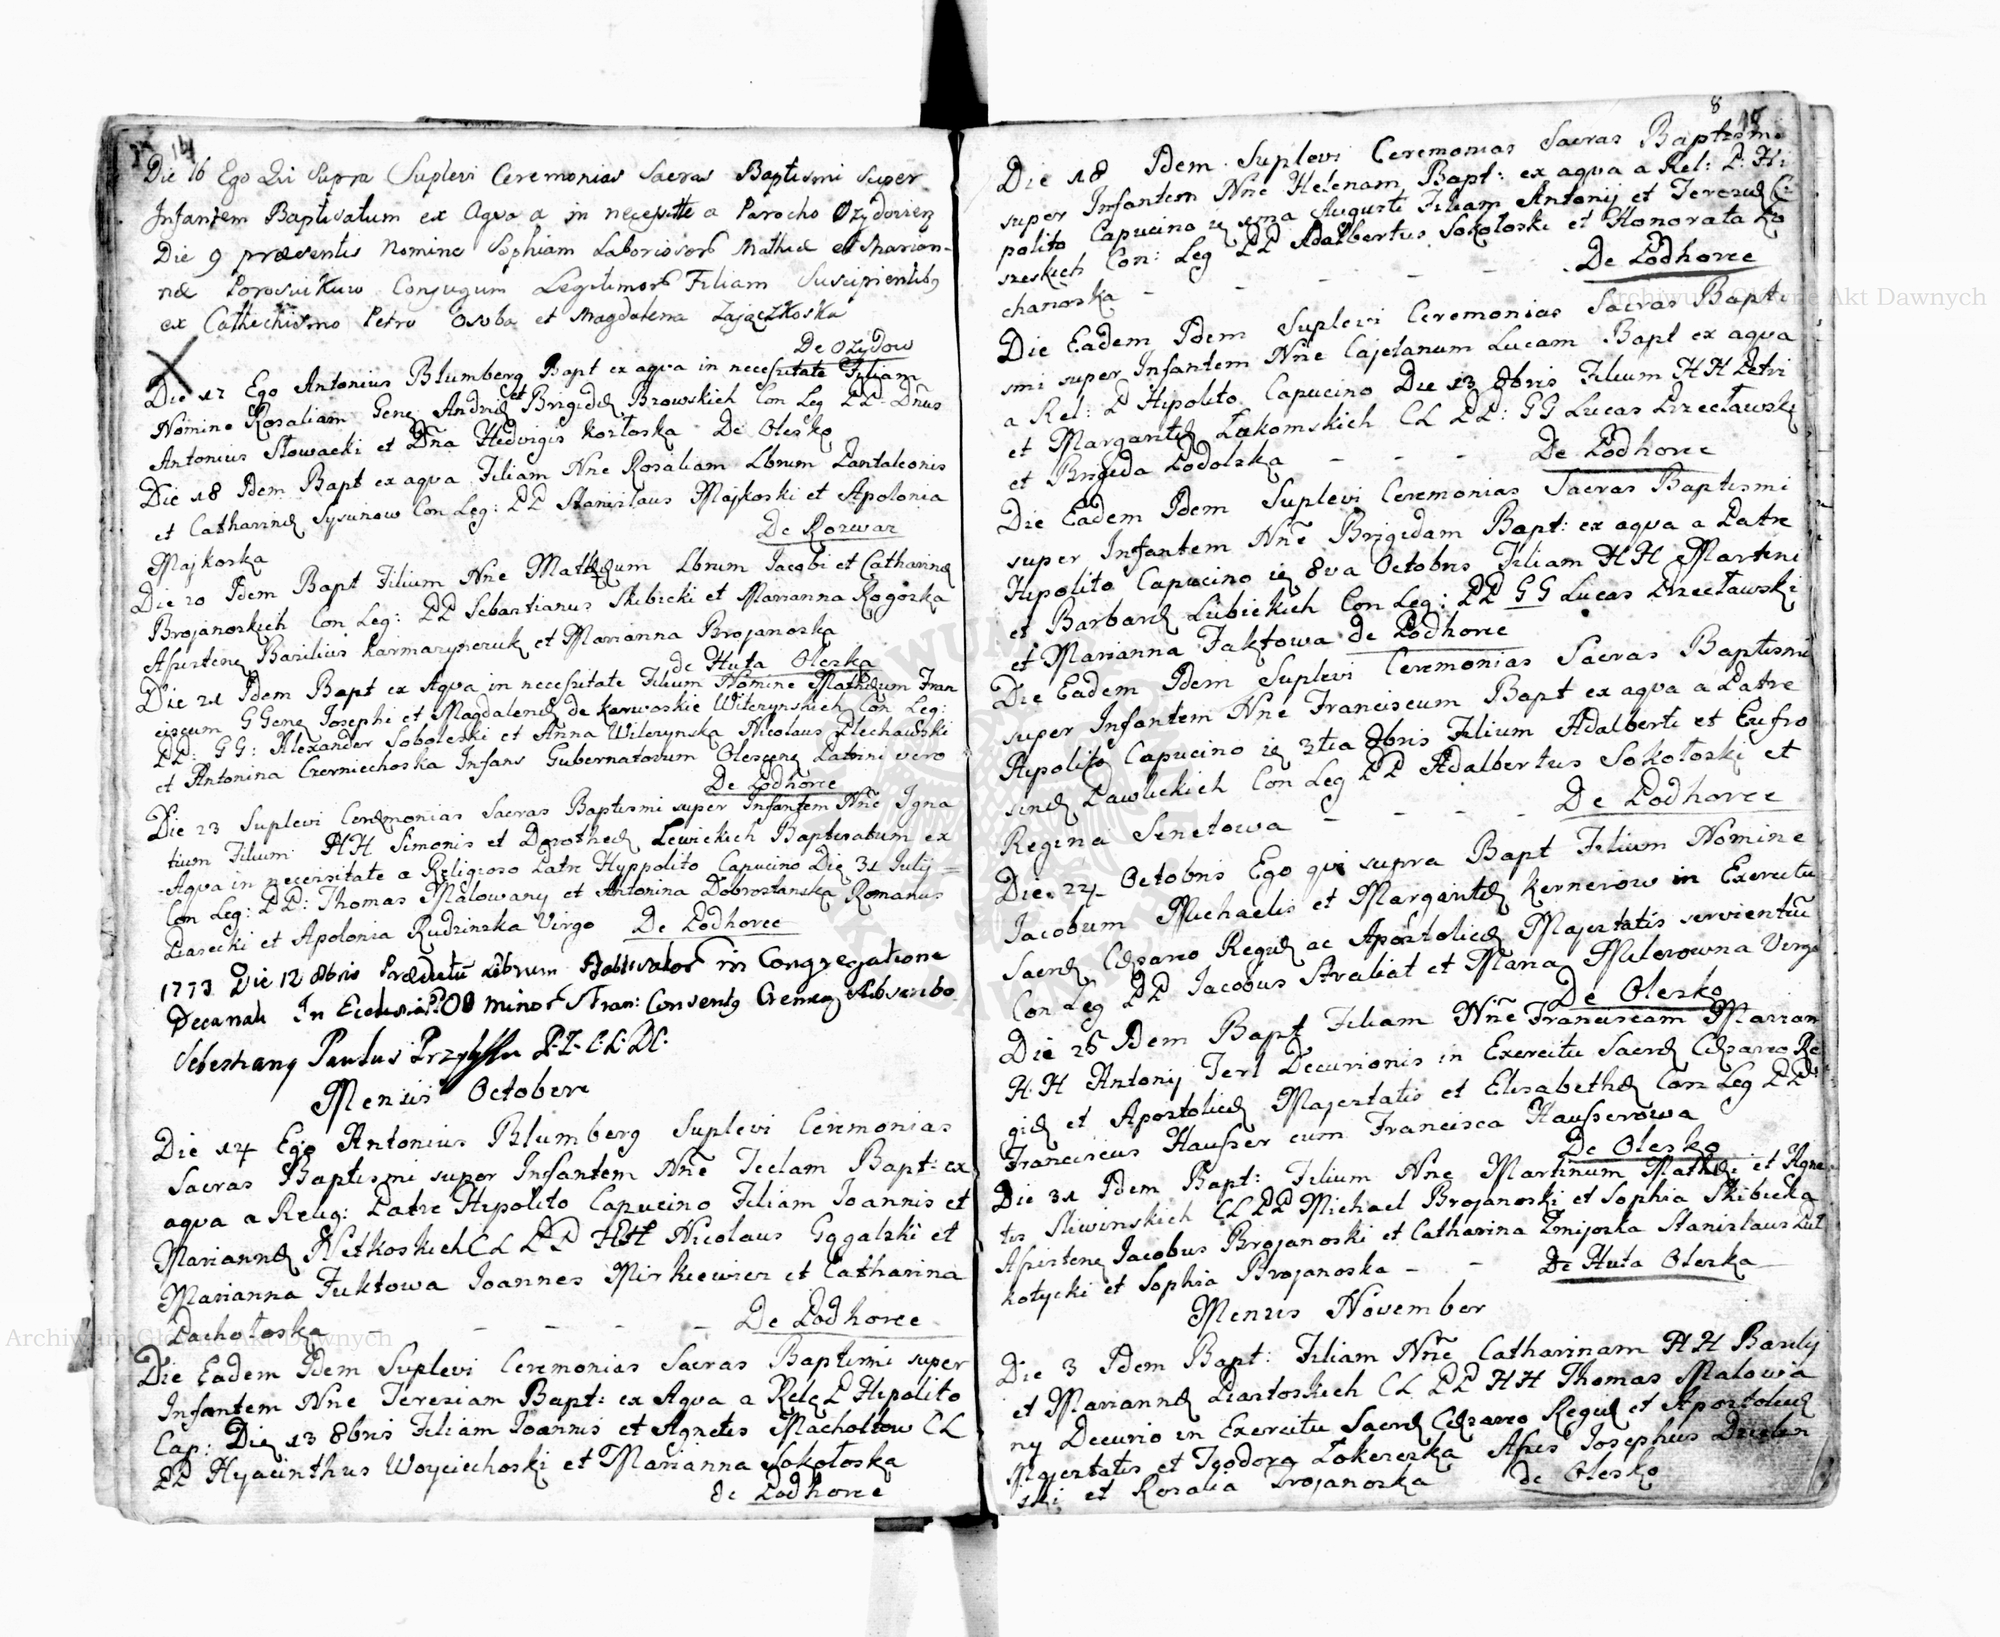 14
Die 16 Ego Qui Supra Suplevi Ceremonias Sacras Baptismi super
Infantem Baptisatum ex Aqva a in necessitte a Parocho Ozydovien
Die 9 præsentis Nomine Sophiam Laboriosor Mathiæ et Marian-
næ Conjugum Legitimor Filiam Suscipientibq
ex Cathechismo Petro Osoba et Magdalena Zajączkoska
De Ozydow
Die 17 Ego Antonius Blumberg Bapt ex aqva in necessitate Filiam
Nomine Rosaliam Gene Andreæ et Brigidæ Browskich Con Leg PP Dñus
Antonius Słowacki et Dña Hedvigis Kozłoska De Olesko
Die 18 Idem Bapt ex aqva Filiam Nne Rosaliam Lbrum Pantaleonis
et Catharinæ Sysunow Con Leg: PP Stanislaus Majkoski et Apolonia
De Rozwaz
Majkoska
Die 20 Idem Bapt Filium Nne Mathæum Lbrum Jacobi et Catharinæ
Brojanoskich Con Leg: PP Sebastianus Skibicki et Marianna Rogoska
Assisten Basilius et Marianna Brojanoska
de Huta Oleska
Die 21 Idem Bapt ex Aqva in necessitate Filium Nomine Mathæum Fran
ciscum GGene Josephi et Magdalenæ de Wilczynskich Con Leg:
PP: GG: Alexander Soboleski et Anna Wilczynska Nicolaus Plechawski
et Antonina Czerniechoska Infans Gubernatorum Olescen vero
De Podhorce
Die 23 Suplevi Ceræmonias Sacras Baptismi super Infantem Nne Igna
tium Filium HH Simonis et Dorotheæ Lewickich Baptisatum ex
Aqva in necessitate a Religioso Patre Hyppolito Capucino Die 31 Julij =
Con Leg: PP: Thomas Malowany et Antonina Dobrosłanska Romanus
Piasecki et Apolonia Rudzinska Virgo De Podhorce
1773 Die 12 8bris Librum in Congregatione
Decanali In Ecclesia OO Minor S Fran: Conventq Subscribo
Paulus
Mensis October
Die 14 Ego Antonius Blumberg Suplevi Ceremonias
Sacras Baptismi super Infantem Nne Teclam Bapt: ex
aqva a Relig: Patre Hipolito Capucino Filiam Joannis et
Mariannæ Netkoskich CL PP HH Nicolaus Gogalski et
Marianna Fuktowa Joannes Mirkiewicz et Catharina
Pachołoska - - - - De Podhorce
Die Eadem Idem Suplevi Ceremonias Sacras Baptismi super
Infantem Nne Teresiam Bapt: ex Aqva a Rele P Hipolito
Cap: Die 13 8bris Filiam Joannis et Agnetis Machołtow CL
PP Hyacinthus Woyciechoski et Marianna Sokołoska
de Podhorce
8
Die 18 Idem Suplevi Ceremonias Sacras Baptismi
super Infantem Nne Helenam Bapt: ex aqva a Rel: P: Hi
polito Capucino ie 1ma Augusti Filiam Antonij et Teresiæ
szeskich Con: Leg PP Adalbertus Sokołoski et Honorata Ko
De Podhorce
chanoska - - - -
Die Eadem Idem Suplevi Ceremonias Sacras Bapti
smi super Infantem Nne Cajetanum Lucam Bapt ex aqva
a Rel: P Hipolito Capucino Die 13 8bris Filium HH Petri
et Margaritæ Łakomskich CL PP: GG Lucas Przecławski
et Brigida Podolska - - - De Podhorce
Die Eadem Idem Suplevi Ceremonias Sacras Baptismi
super Infantem Nne Brigidam Bapt: ex aqva a Patre
Hipolito Capucino ie 8va Octobris Filiam HH Martini
et Barbaræ Lubickich Con Leg: PP GG Lucas Przecławski
et Marianna Faktowa de Podhorce
Die Eadem Idem Suplevi Ceremonias Sacras Baptismi
super Infantem Nne Franciscum Bapt ex aqva a Patre
Hipolito Capucino ie 3tia 8bris Filium Adalberti et Eufro
sinæ Pawlickich Con Leg PP Adalbertus Sokołoski et
Regina Senetowa - - - - De Podhorce
Die 24 Octobris Ego qvi supra Bapt Filium Nomine
Jacobum Michaelis et Margaritæ Kernerow in Exercitu
Sacræ Cæsareo Regiæ ac Apostolicæ Majestatis servientiu
Con Leg PP Jacobus Strabat et Maria Milerowna Virgo
De Olesko
Die 25 Idem Bapt Filiam Nne Franciscam Marian
HH Antonij Terl Decurionis in Exercitu Sacræ Cæsareo Re
giæ et Apostolicæ Majestatis et Elisabethæ Con Leg PP
Franciscus Hausser cum Francisca Hausserowa
De Olesko
Die 31 Idem Bapt: Filium Nne Martinum Mathæi et Agne
tis Sliwinskich CL PP Michael Brojanoski et Sophia Skibicka
Assisten Jacobus Brojanoski et Catharina Zmijoska Stanislaus
kotycki et Sophia Brojanoska - - De Huta Oleska
Mensis November
Die 3 Idem Bapt: Filiam Nne Catharinam HH Basilij
et Mariannæ Piastoskich CL PP HH Thomas Malowa
ny Decurio in Exercitu Sacræ Cæsareo Regiæ et Apostolicæ
Majestatis et Teodora Assis Josephus
ski et Rosalia Trojanoska de Olesko
Archiwum Główne Akt Dawnych
Archiwum Główne Akt Dawnych